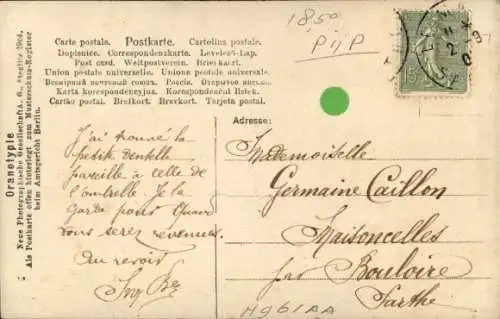 18,50
PijP
Carte postale. Postkarte. Cartolina postale.
Dopisnice. Correspondenzkarte. Levelező-Lap.
Post card. Weltpostverein. Brievkaart.
Union postale universelle. Unione postale universale.
Всемірный почтовый союзъ. Россія. Открытое письмо.
Karta korespondencyjna. Korespondenční lístek.
Cartão postal. Brefkort. Brevkort. Tarjeta postal.
Oranotypie
Neue Photographische Gesellschaft A. G., Steglitz 1904.
Als Postkarte offen hinterlegt zum Musterschutz-Register
beim Amtsgericht Berlin.
Adresse:
J'ai trouvé la
petite dentelle
pareille à celle de
l'ombrelle. Je la
garde pour quand
vous serez revenues.
Au revoir
Mademoiselle
Germaine Caillon
Maisoncelles
par Bouloire
Sarthe
H961AA
15